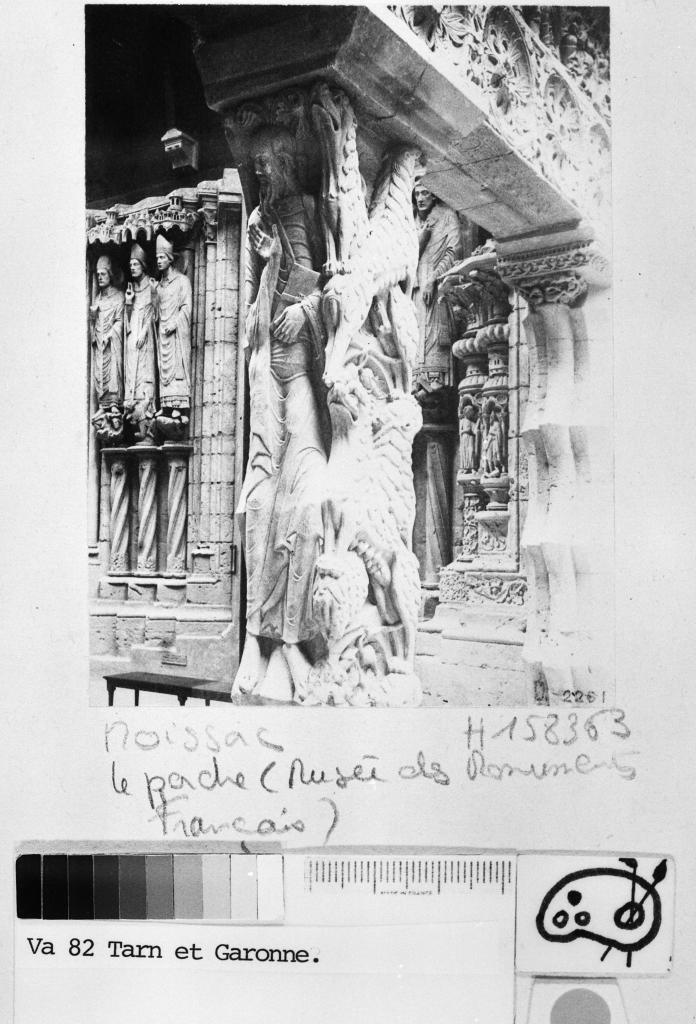 2261
Moissac H158363
le porche (Musée des Monuments
Français)
MADE IN FRANCE
Va 82 Tarn et Garonne.